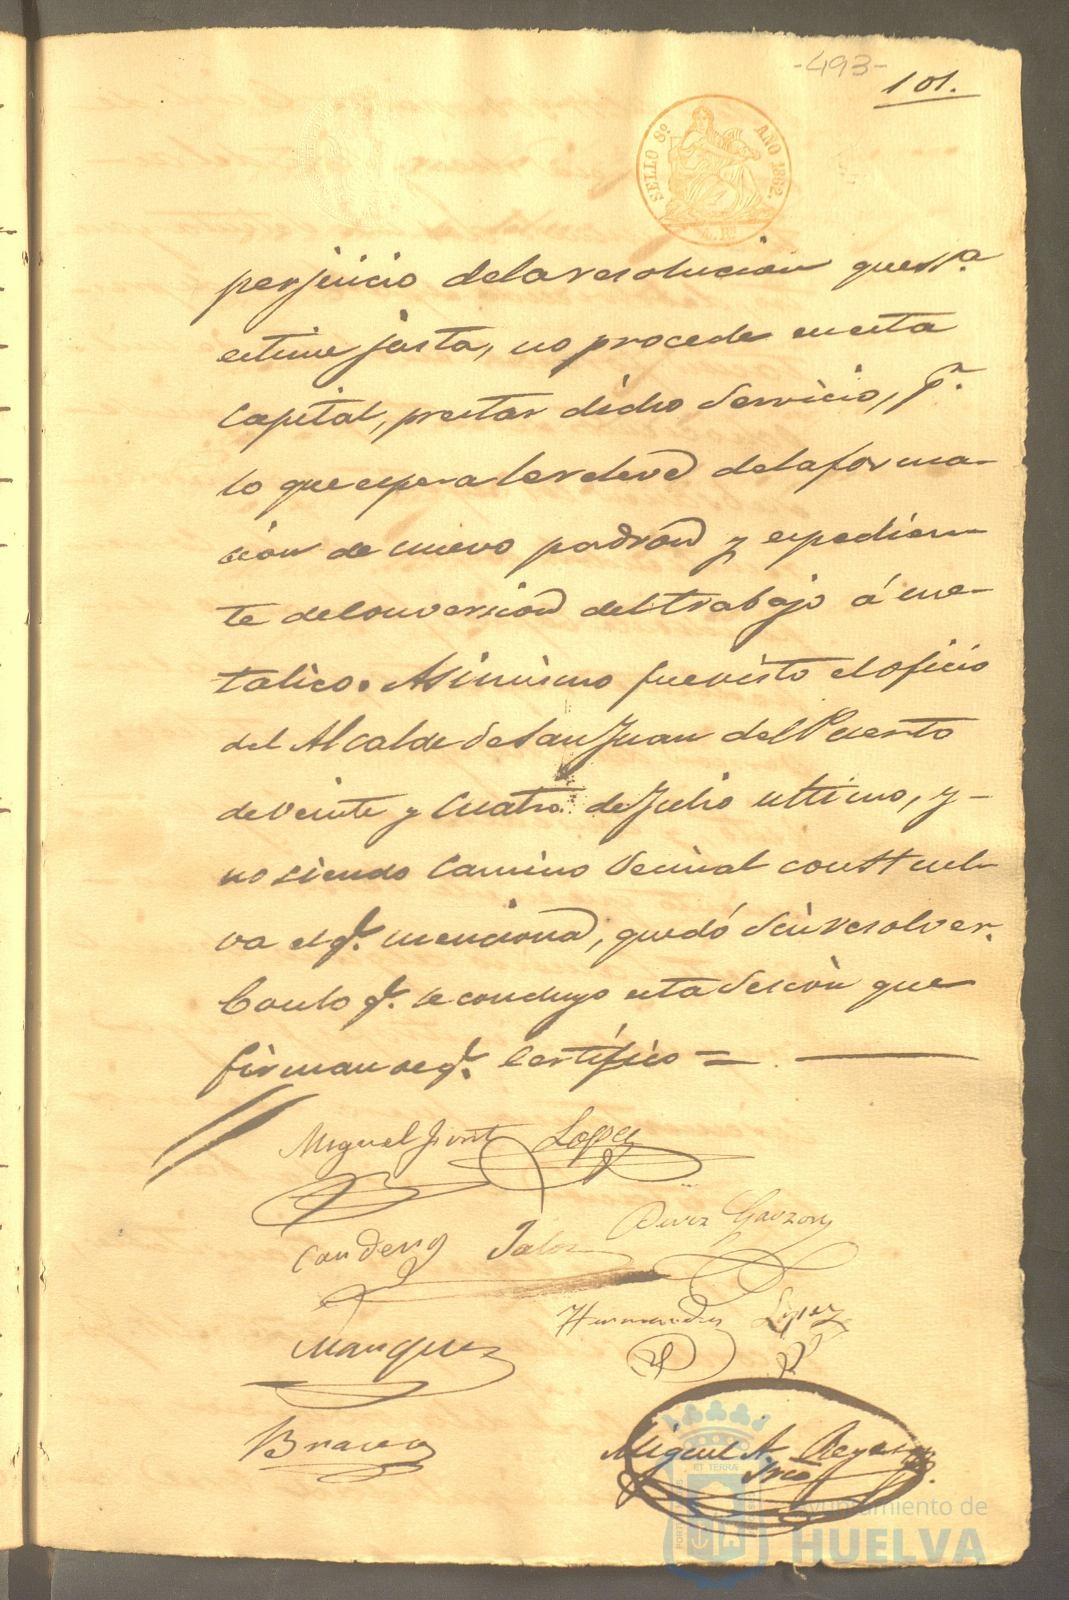 -493-
101.
SELLO 8º AÑO 1862.
perjuicio delaresolucion que s.s.ª
estime justa, no procede en esta
Capital, prestar dicho Servicio, p.ʳ
lo que espera le releve delaforma-
ción de nuevo padron y espedien-
te deConversion deltrabajo á me-
talico. Asimismo fuevisto eloficio
del Alcalde deSanJuan delPuerto
deveinte y Cuatro deJulio ultimo, y-
no siendo Camino Vecinal
va el q.ᵉ menciona, quedó Sin resolver.
Conlo q.ᵉ se concluyo esta Sesión que
firman de q.ᵉ Certifico =
Miguel López
Garzon
Hernandez López
Marquez
Bravo
Miguel A. Reyes
Srio
Ayuntamiento de
HUELVA